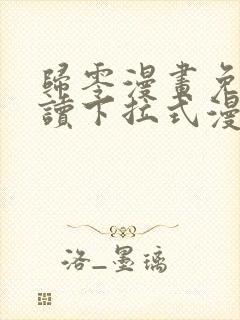 歸零漫畫免
讀下拉式漫
洛_墨璃